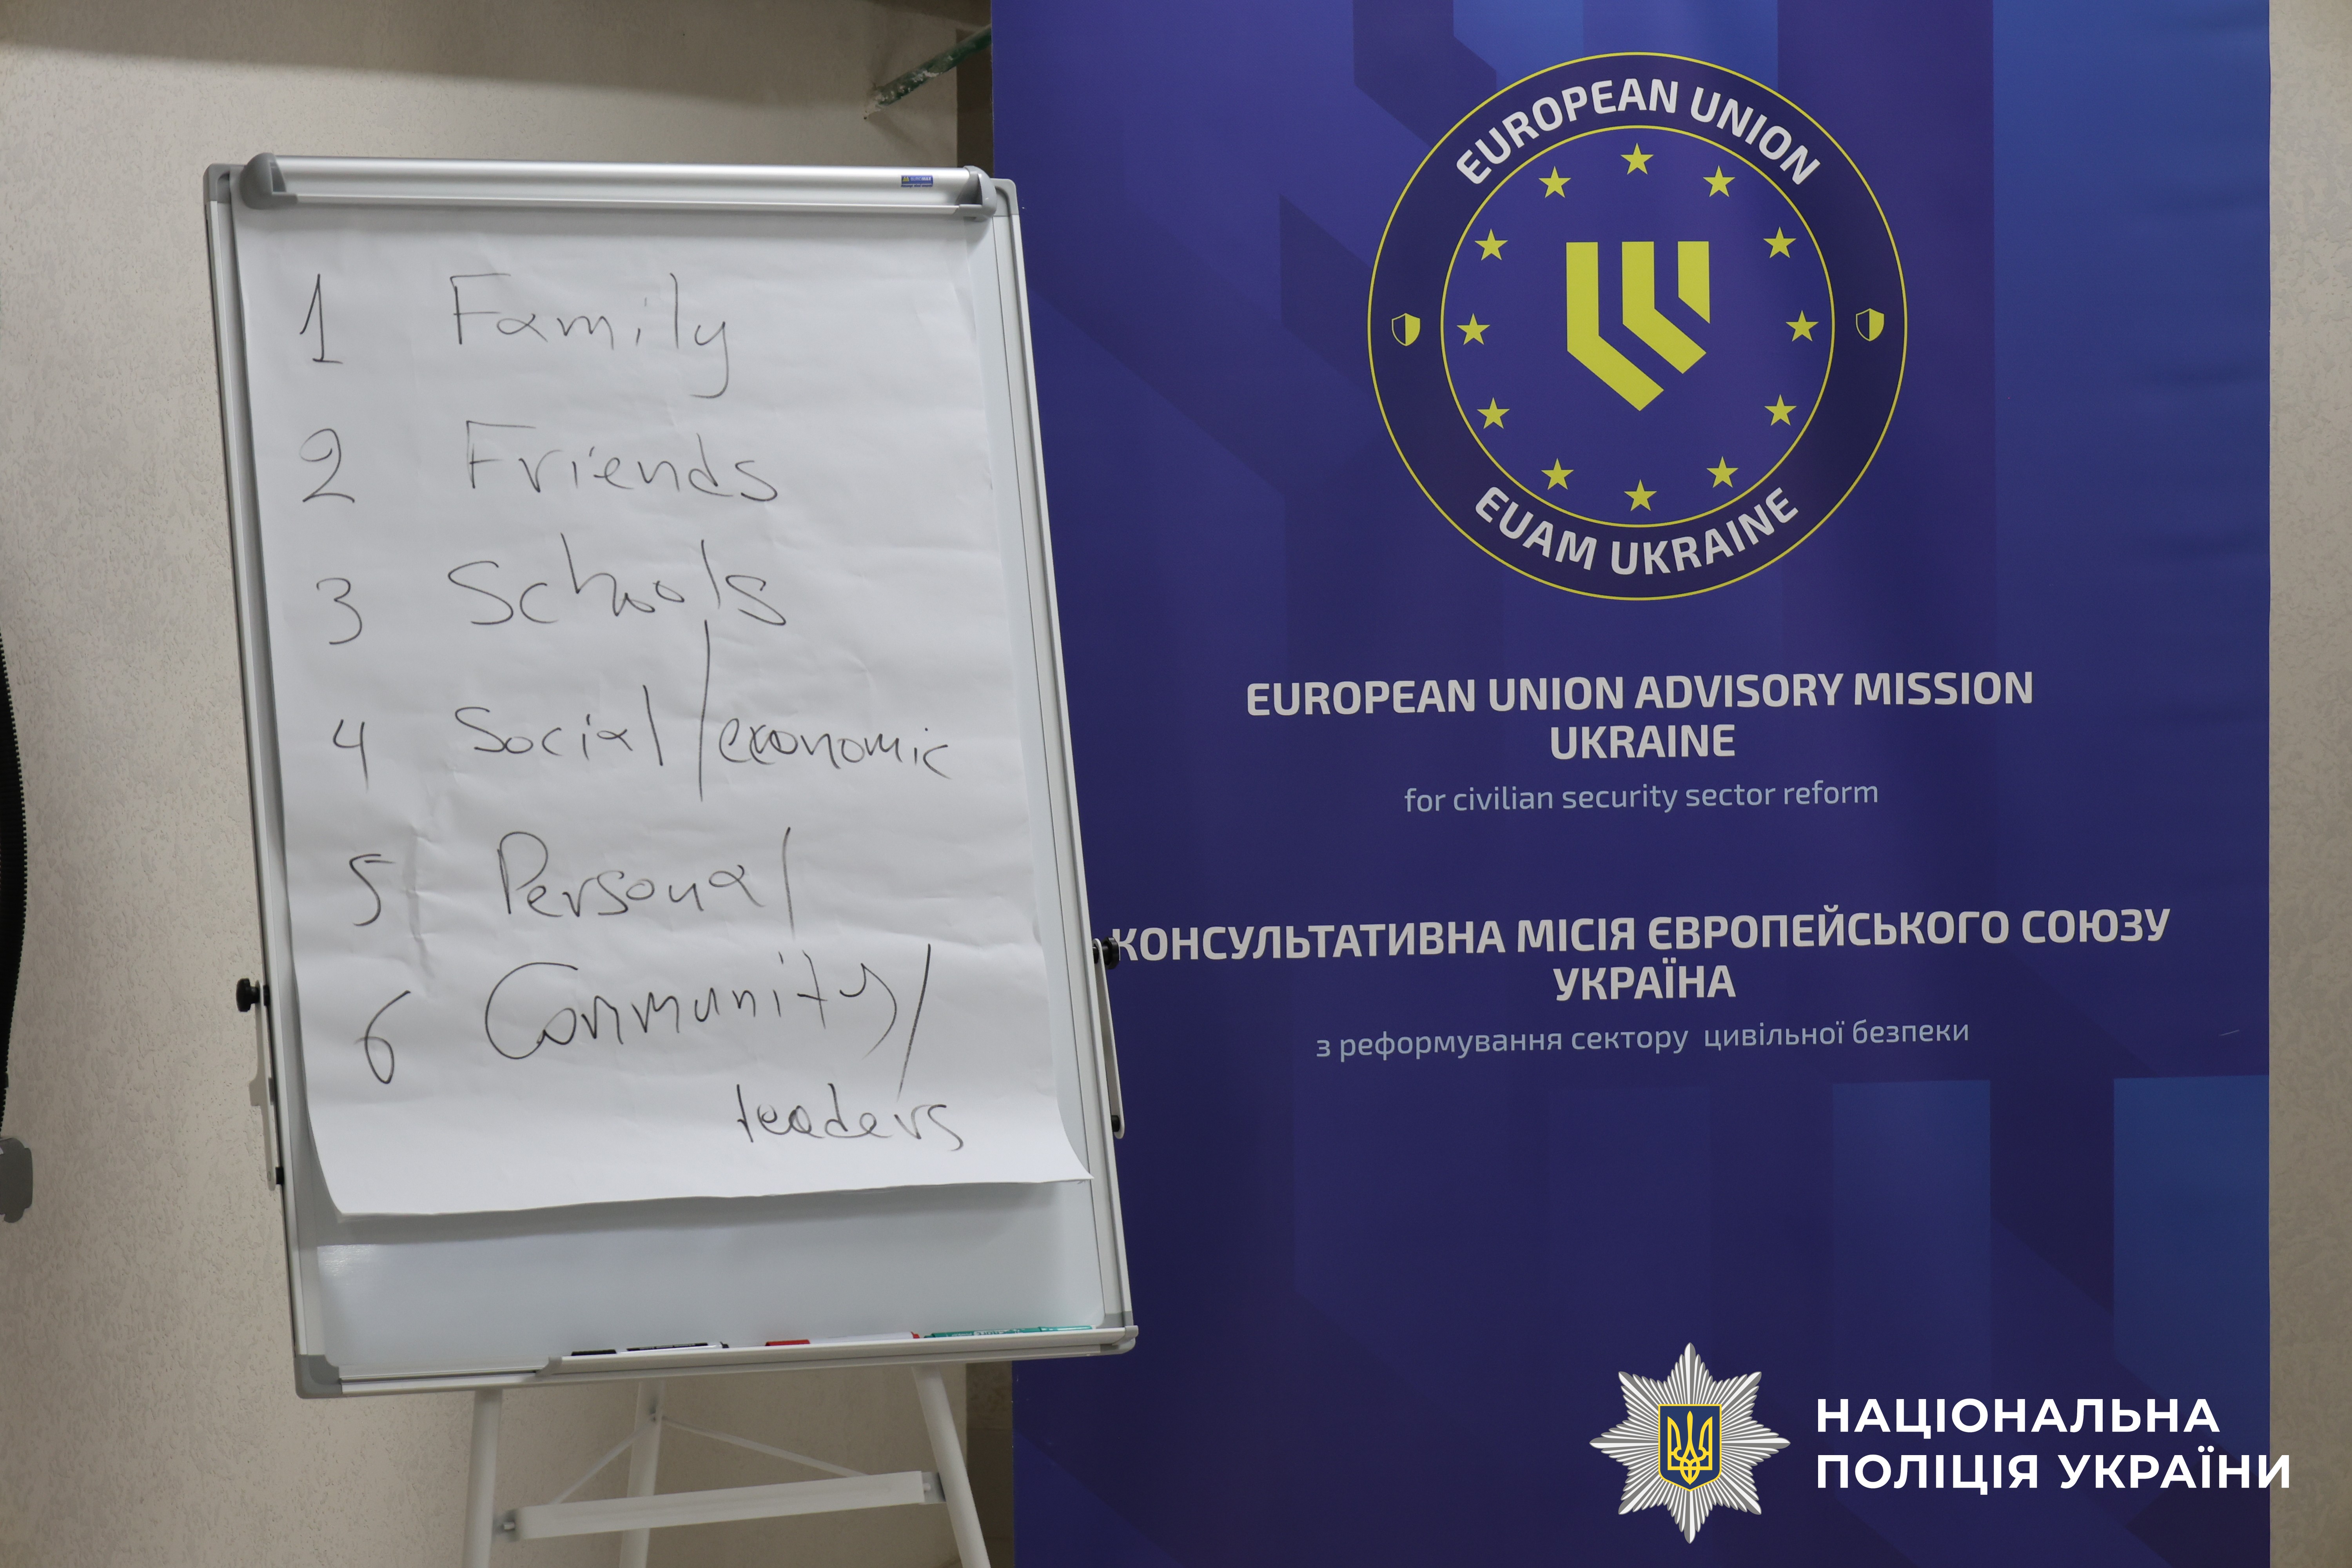 1 Family
2 Friends
3 Schools
4 Social/economic
5 Personal
6 Community/
leaders
EUROPEAN UNION
EUAM UKRAINE
EUROPEAN UNION ADVISORY MISSION
UKRAINE
for civilian security sector reform
КОНСУЛЬТАТИВНА МІСІЯ ЄВРОПЕЙСЬКОГО СОЮЗУ
УКРАЇНА
з реформування сектору цивільної безпеки
НАЦІОНАЛЬНА
ПОЛІЦІЯ УКРАЇНИ